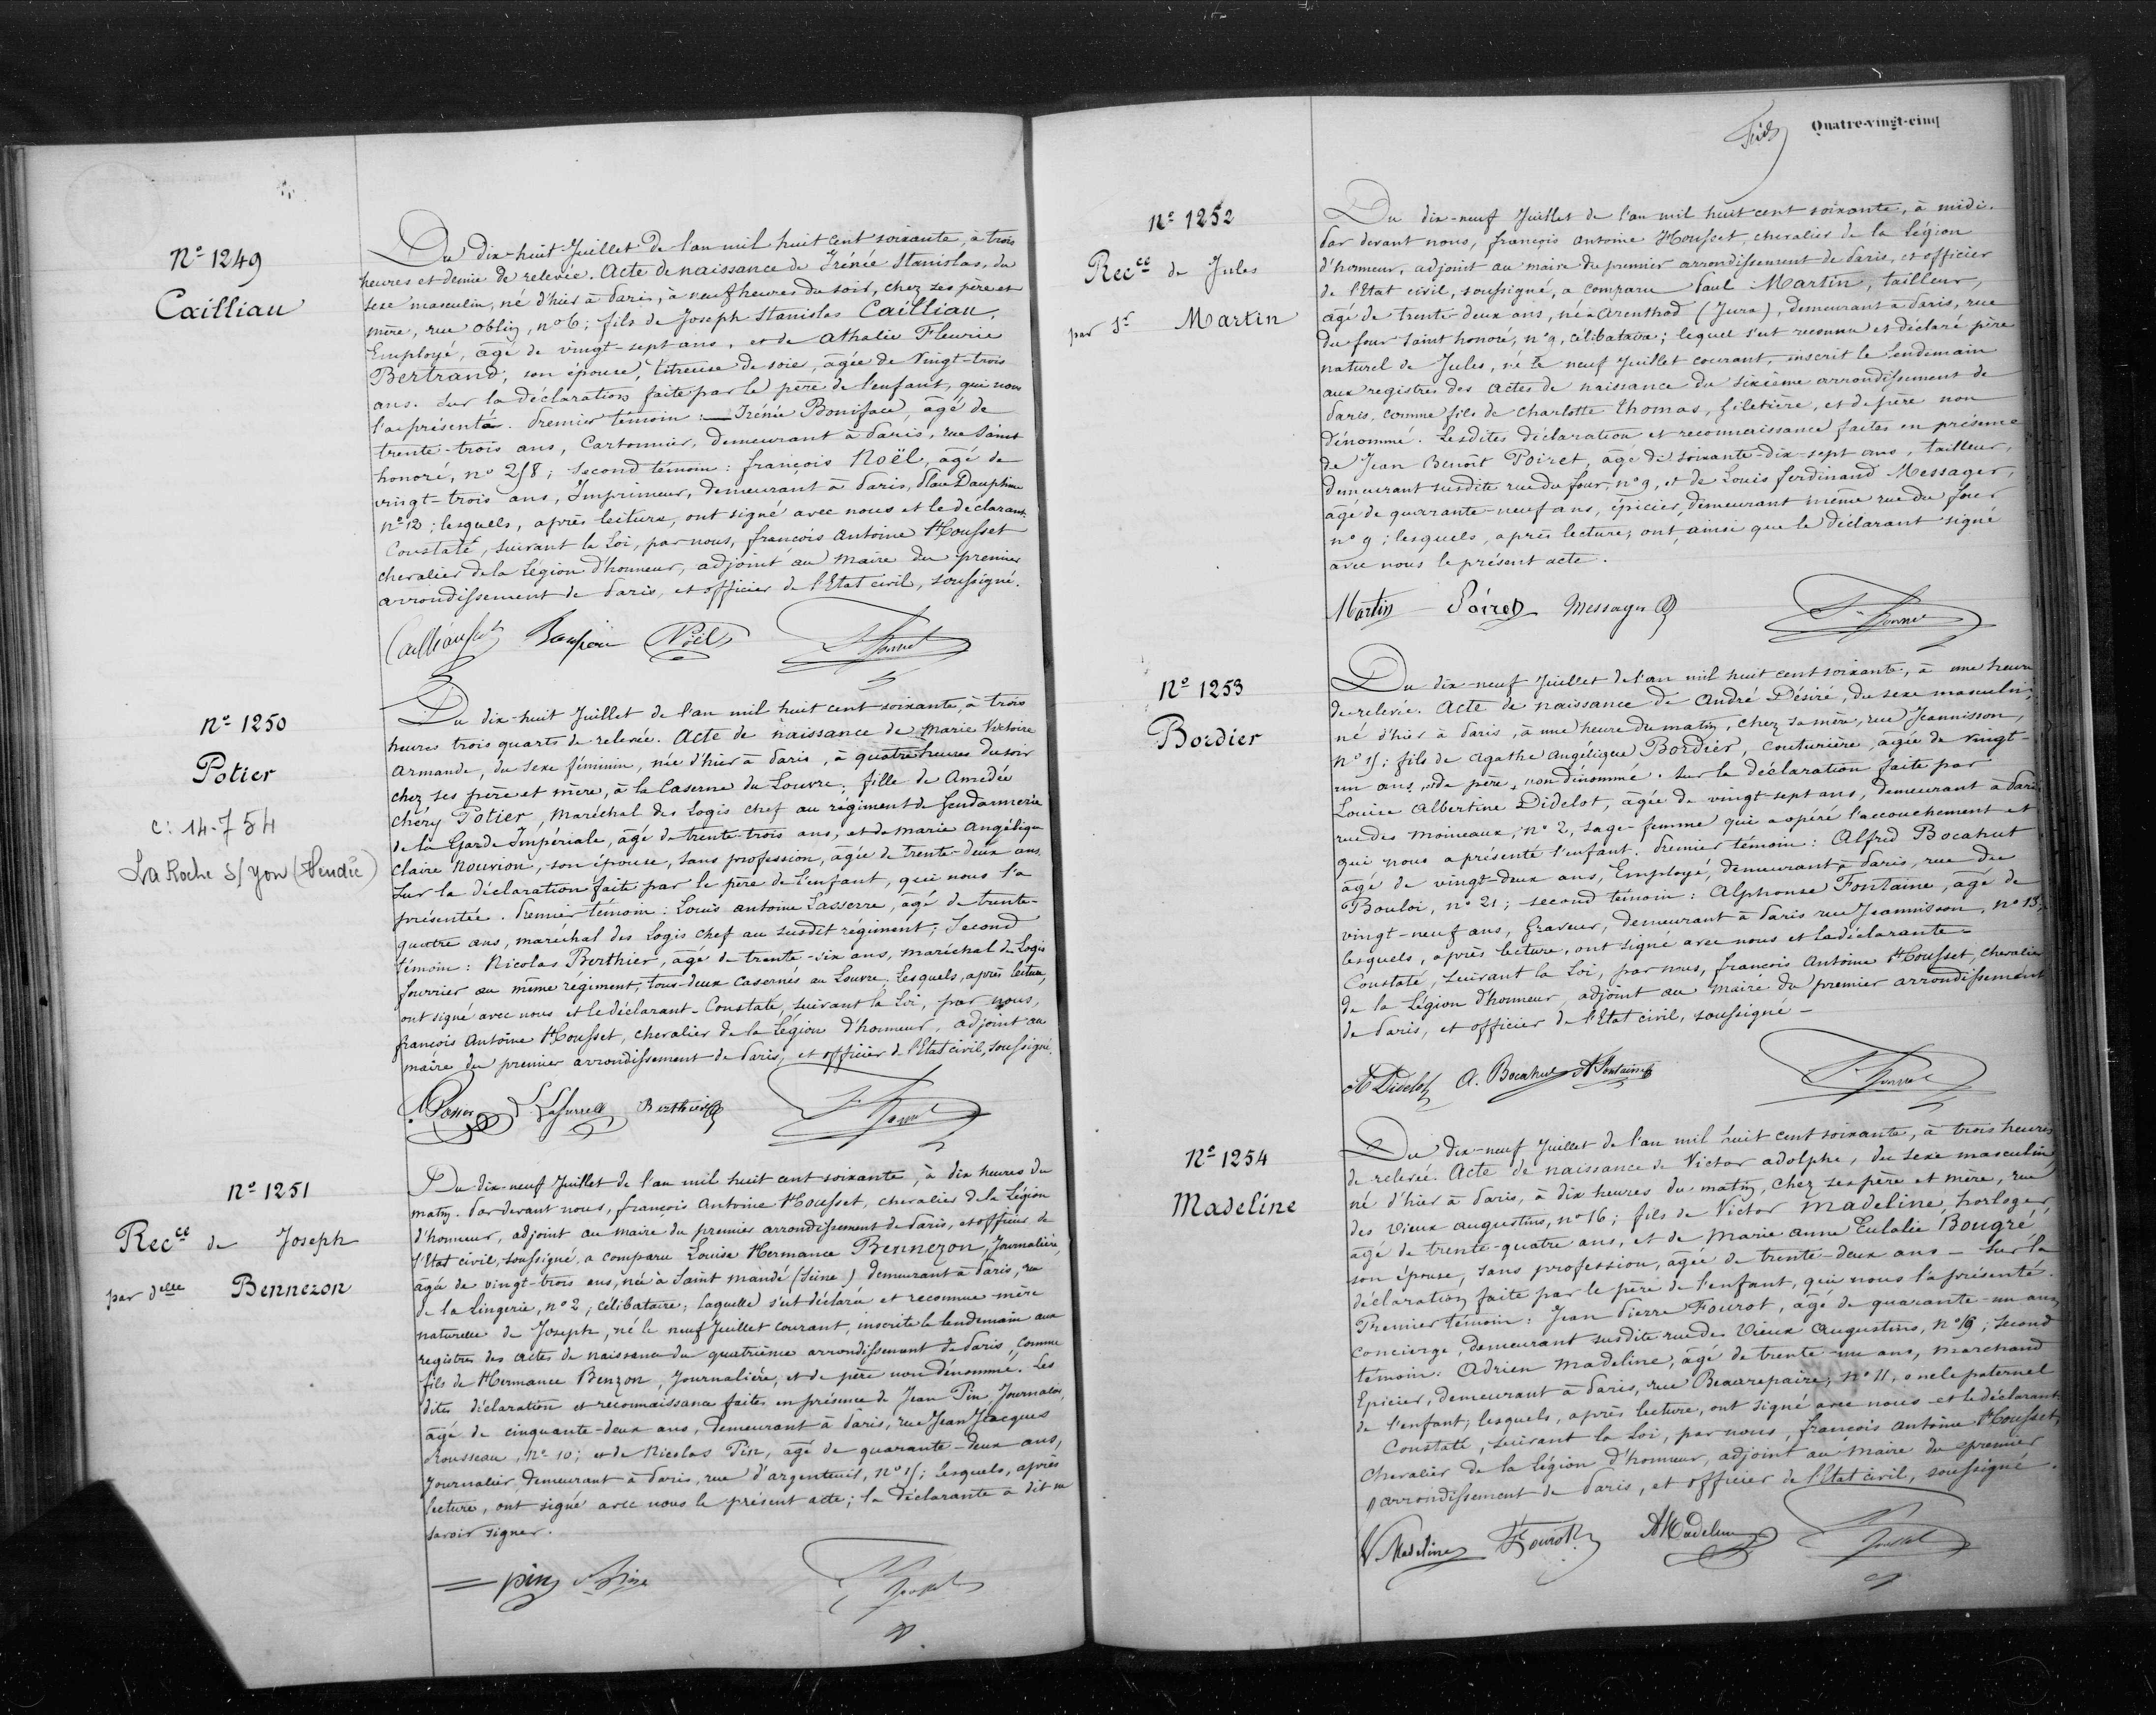 Nº 1249
Cailliau
Du dix-huit Juillet de l'an mil huit cent soixante, à trois
heures et demie de relevée. Acte de naissance de Irénée Stanislas, du
sexe masculin, né d'hier à Paris, à neuf heures du soir, chez ses père et
mère, rue oblin, nº 6; fils de Joseph Stanislas Cailliau,
Employé, âgé de vingt-sept ans, et de Athalie Fleurie
Bertrand, son épouse, titreuse de soie, âgée de vingt-trois
ans. Sur la déclaration faite par le père de l'enfant, qui nous
l'a présenté. Premier témoin: Irénée Boniface, âgé de
trente-trois ans, Cartonnier, demeurant à Paris, rue Saint
honoré, nº 258; second témoin: françois Noël, âgé de
vingt-trois ans, Imprimeur, demeurant à Paris, Place Dauphine
nº 12; lesquels, après lecture, ont signé avec nous et le déclarant.
Constaté, suivant la Loi, par nous, françois Antoine Housset
chevalier de la Légion d'honneur, adjoint au maire du premier
arrondissement de Paris, et officier de l'Etat civil, soussigné.
Noël
Nº 1250
Potier
c: 14-7 54
La Roche s/yon (Vendée)
Du dix-huit Juillet de l'an mil huit cent soixante, à trois
heures trois quarts de relevée. Acte de naissance de Marie Victoire
Armande, du sexe féminin, née d'hier à Paris, à quatre heures du soir
chez ses père et mère, à la Caserne du Louvre; fille de Amedée
Chéry Potier, Maréchal des Logis chef au régiment de Gendarmerie
de la Garde Impériale, âgé de trente-trois ans, et de marie Angélique
Claire Nouvion, son épouse, sans profession, âgée de trente-deux ans.
Sur la déclaration faite par le père de l'enfant, qui nous l'a
présentée. Premier témoin: Louis antoine Lasserre, âgé de trente-
quatre ans, maréchal des Logis chef au susdit régiment; Second
témoin: Nicolas Berthier, âgé de trente-six ans, maréchal des Logis
fourrier au même régiment, tous deux casernés au Louvre; Lesquels, après lecture,
ont signé avec nous et le déclarant. Constaté, suivant la Loi, par nous,
françois Antoine Housset, chevalier de la Légion d'honneur, adjoint au
maire du premier arrondissement de Paris, et officier de l'Etat civil, soussigné.
Berthier
Nº 1251
Recce de Joseph
par delle Bennezon
Du dix-neuf Juillet de l'an mil huit cent soixante, à dix heures du
matin. Par devant nous, françois Antoine Housset, chevalier de la Légion
d'honneur, adjoint au maire du premier arrondissement de Paris, et officier de
l'Etat civil, soussigné, a comparu Louise Hermance Bennezon, Journalière,
âgée de vingt-trois ans, née à Saint mandé (Seine) demeurant à Paris, rue
de la Lingerie, nº 2, célibataire; laquelle s'est déclarée et reconnue mère
naturelle de Joseph, né le neuf Juillet courant, inscrit le lendemain aux
registres des actes de naissance du quatrième arrondissement de Paris, comme
fils de Hermance Benzon, Journalière, et de père non dénommé. Les
dites déclaration et reconnaissance faites en présence de Jean Pin, Journalier,
âgé de cinquante-deux ans, demeurant à Paris, rue Jean Jacques
Rousseau, nº 10; et de Nicolas Pin, âgé de quarante-deux ans,
Journalier, demeurant à Paris, rue d'argenteuil, nº 15; lesquels, après
lecture, ont signé avec nous le présent acte; la déclarante a dit ne
savoir signer.
pin
Quatre-vingt-cinq
Nº 1252
Recce de Jules
par Sr Martin
Du dix-neuf Juillet de l'an mil huit cent soixante, à midi.
Par devant nous, françois antoine Housset, chevalier de la légion
d'honneur, adjoint au maire du premier arrondissement de Paris, et officier
de l'Etat civil, soussigné, a comparu Paul Martin, tailleur,
âgé de trente-deux ans, né à Arenthod (Jura), demeurant à Paris, rue
du four saint honoré, nº 9, célibataire; lequel s'est reconnu et déclaré père
naturel de Jules, né le neuf Juillet courant, inscrit le lendemain
aux registres des actes de naissance du sixième arrondissement de
Paris, comme fils de Charlotte Thomas, Giletière, et de père non
dénommé. Lesdites déclaration et reconnaissance faites en présence
de Jean Benoît Poiret, âgé de soixante-dix-sept ans, tailleur,
demeurant susdite rue du four, nº 9, et de Louis ferdinand Messager,
âgé de quarante-neuf ans, épicier, demeurant même rue du four
nº 9; lesquels, après lecture, ont, ainsi que le déclarant signé
avec nous le présent acte.
Martin Poiret Messager
Nº 1253
Bordier
Du dix-neuf Juillet de l'an mil huit cent soixante, à une heure
de relevée. Acte de naissance de André Désiré, du sexe masculin,
né d'hier à Paris, à une heure du matin, chez sa mère, rue Jeannisson,
nº 15; fils de Agathe Angélique Bordier, couturière, âgée de vingt-
un ans, et de père non dénommé. Sur la déclaration faite par
Louise Albertine Didelot, âgée de vingt-sept ans, demeurant à Paris
rue des Moineaux, nº 2, sage-femme qui a opéré l'accouchement et
qui nous a présenté l'enfant. Premier témoin: Alfred Bocahut
âgé de vingt-deux ans, Employé, demeurant à Paris, rue du
Bouloi, nº 21; second témoin: Alphonse Fontaine, âgé de
vingt-neuf ans, Graveur, demeurant à Paris rue Jeannisson, nº 15;
lesquels, après lecture, ont signé avec nous et la déclarante-
Constaté, suivant la Loi, par nous, françois Antoine Housset, chevalier
de la Légion d'honneur, adjoint au maire du premier arrondissement
de Paris, et officier de l'Etat civil, soussigné-
A. Bocahut A Fontaine
Nº 1254
Madeline
Du dix-neuf Juillet de l'an mil huit cent soixante, à trois heures
de relevée. Acte de naissance de Victor adolphe, du sexe masculin,
né d'hier à Paris, à dix heures du matin, chez ses père et mère, rue
des Vieux augustins, nº 16; fils de Victor Madeline, horloger,
âgé de trente-quatre ans, et de Marie anne Eulalie Bougré,
son épouse, sans profession, âgée de trente-deux ans - Sur la
déclaration faite par le père de l'enfant, qui nous l'a présenté.
Premier témoin: Jean Pierre Fourot, âgé de quarante-un ans,
concierge, demeurant susdite rue des Vieux Augustins, nº 16; second
témoin: Adrien Madeline, âgé de trente-un ans, marchand
Epicier, demeurant à Paris, rue Beaurepaire, nº 11, oncle paternel
de l'enfant; lesquels, après lecture, ont signé avec nous et le déclarant
Constaté, suivant la Loi, par nous, françois antoine Housset,
Chevalier de la Légion d'honneur, adjoint au Maire du premier
arrondissement de Paris, et officier de l'Etat civil, soussigné.
V Madeline Fourot A Madeline